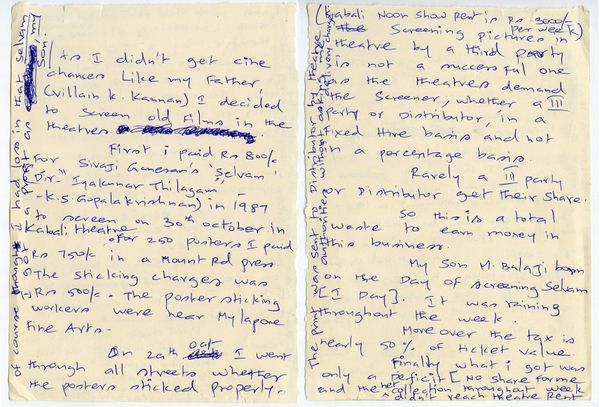 As I didn't get cine
chances Like my Father,
(villain K. Kannan) I decided
to screen old Films in the
theatres
First i paid Rs 800/-
For Sivaji Ganesan's 'Selvam'
(Dir- "Iyakunar Thilagam -
-K.S. Gopalakrishnan) in 1987
to screen on 30th october in
Kabali theatre.
For 250 posters I paid
Rs 750/- in a Mount Rd press.
The sticking charges was
Rs 500/-. The poster sticking
workers were near Mylapore
Fine Arts.
On 29th oct I went
through all streets whether
the posters sticked properly.
of course though I had loss in that Selvam
I got a profit as my
Son.
(Kabali Noon show Rent is Rs. 3000/-
per week)
Screening pictures in
theatre by a third party
is not a successful one
as the theatres demand
the Screener, whether a III
party or Distributor, in a
Fixed Hire basis and not
in a percentage basis.
Rarely a III party
or Distributor get their Share.
So this is a total
waste to earn money in
this business.
My Son M. Balaji born
on the Day of screening Selvam
[I Day]. It was raining
throughout the week.
More over the tax is
nearly 50% of ticket value.
Finally what i got was
only a Deficit [No share for me
and the net collection throughout week
didn't reach theatre Rent
The print was sent to Distributor by theatre
authorities without asking any
delivery charge